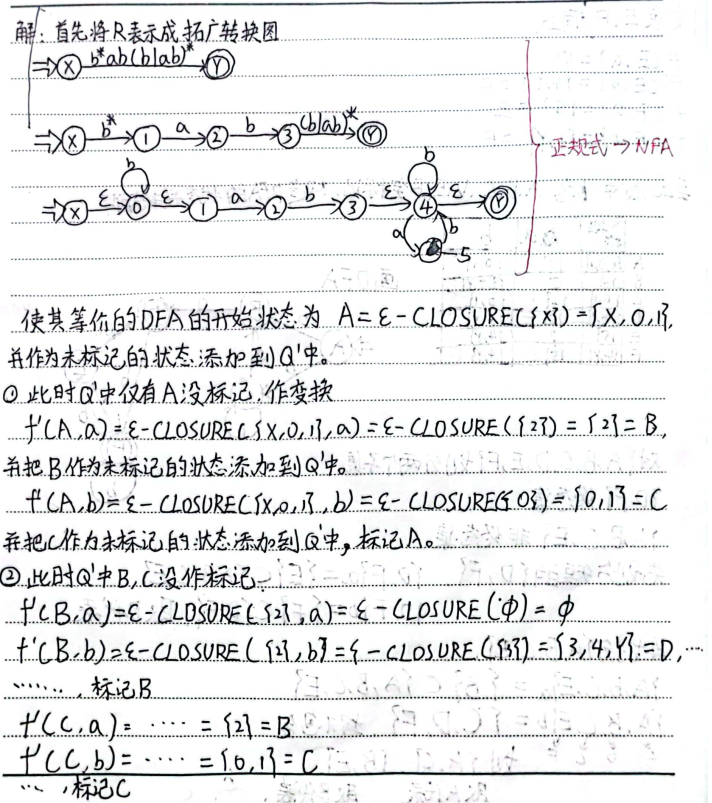 解:首先将R表示成拓广转换图
⇒X b*ab(b|ab)* Y
⇒X b* 1 a 2 b 3 (b|ab)* Y
正规式→NFA
b b
⇒X ε 0 ε 1 a 2 b 3 ε 4 ε Y
a b
5
使其等价的DFA的开始状态为 A=ε-CLOSURE({X})={X,0,1},
并作为未标记的状态添加到Q'中。
① 此时Q'中仅有A没标记,作变换
f'(A,a)=ε-CLOSURE({X,0,1},a)=ε-CLOSURE({2})={2}=B,
并把B作为未标记的状态添加到Q'中。
f'(A,b)=ε-CLOSURE({X,0,1},b)=ε-CLOSURE({0})={0,1}=C
并把C作为未标记的状态添加到Q'中,标记A。
② 此时Q'中B,C没作标记
f'(B,a)=ε-CLOSURE({2},a)=ε-CLOSURE(φ)=φ
f'(B,b)=ε-CLOSURE({2},b)=ε-CLOSURE({3})={3,4,Y}=D,…
……,标记B
f'(C,a)=……={2}=B
f'(C,b)=……={0,1}=C
…,标记C